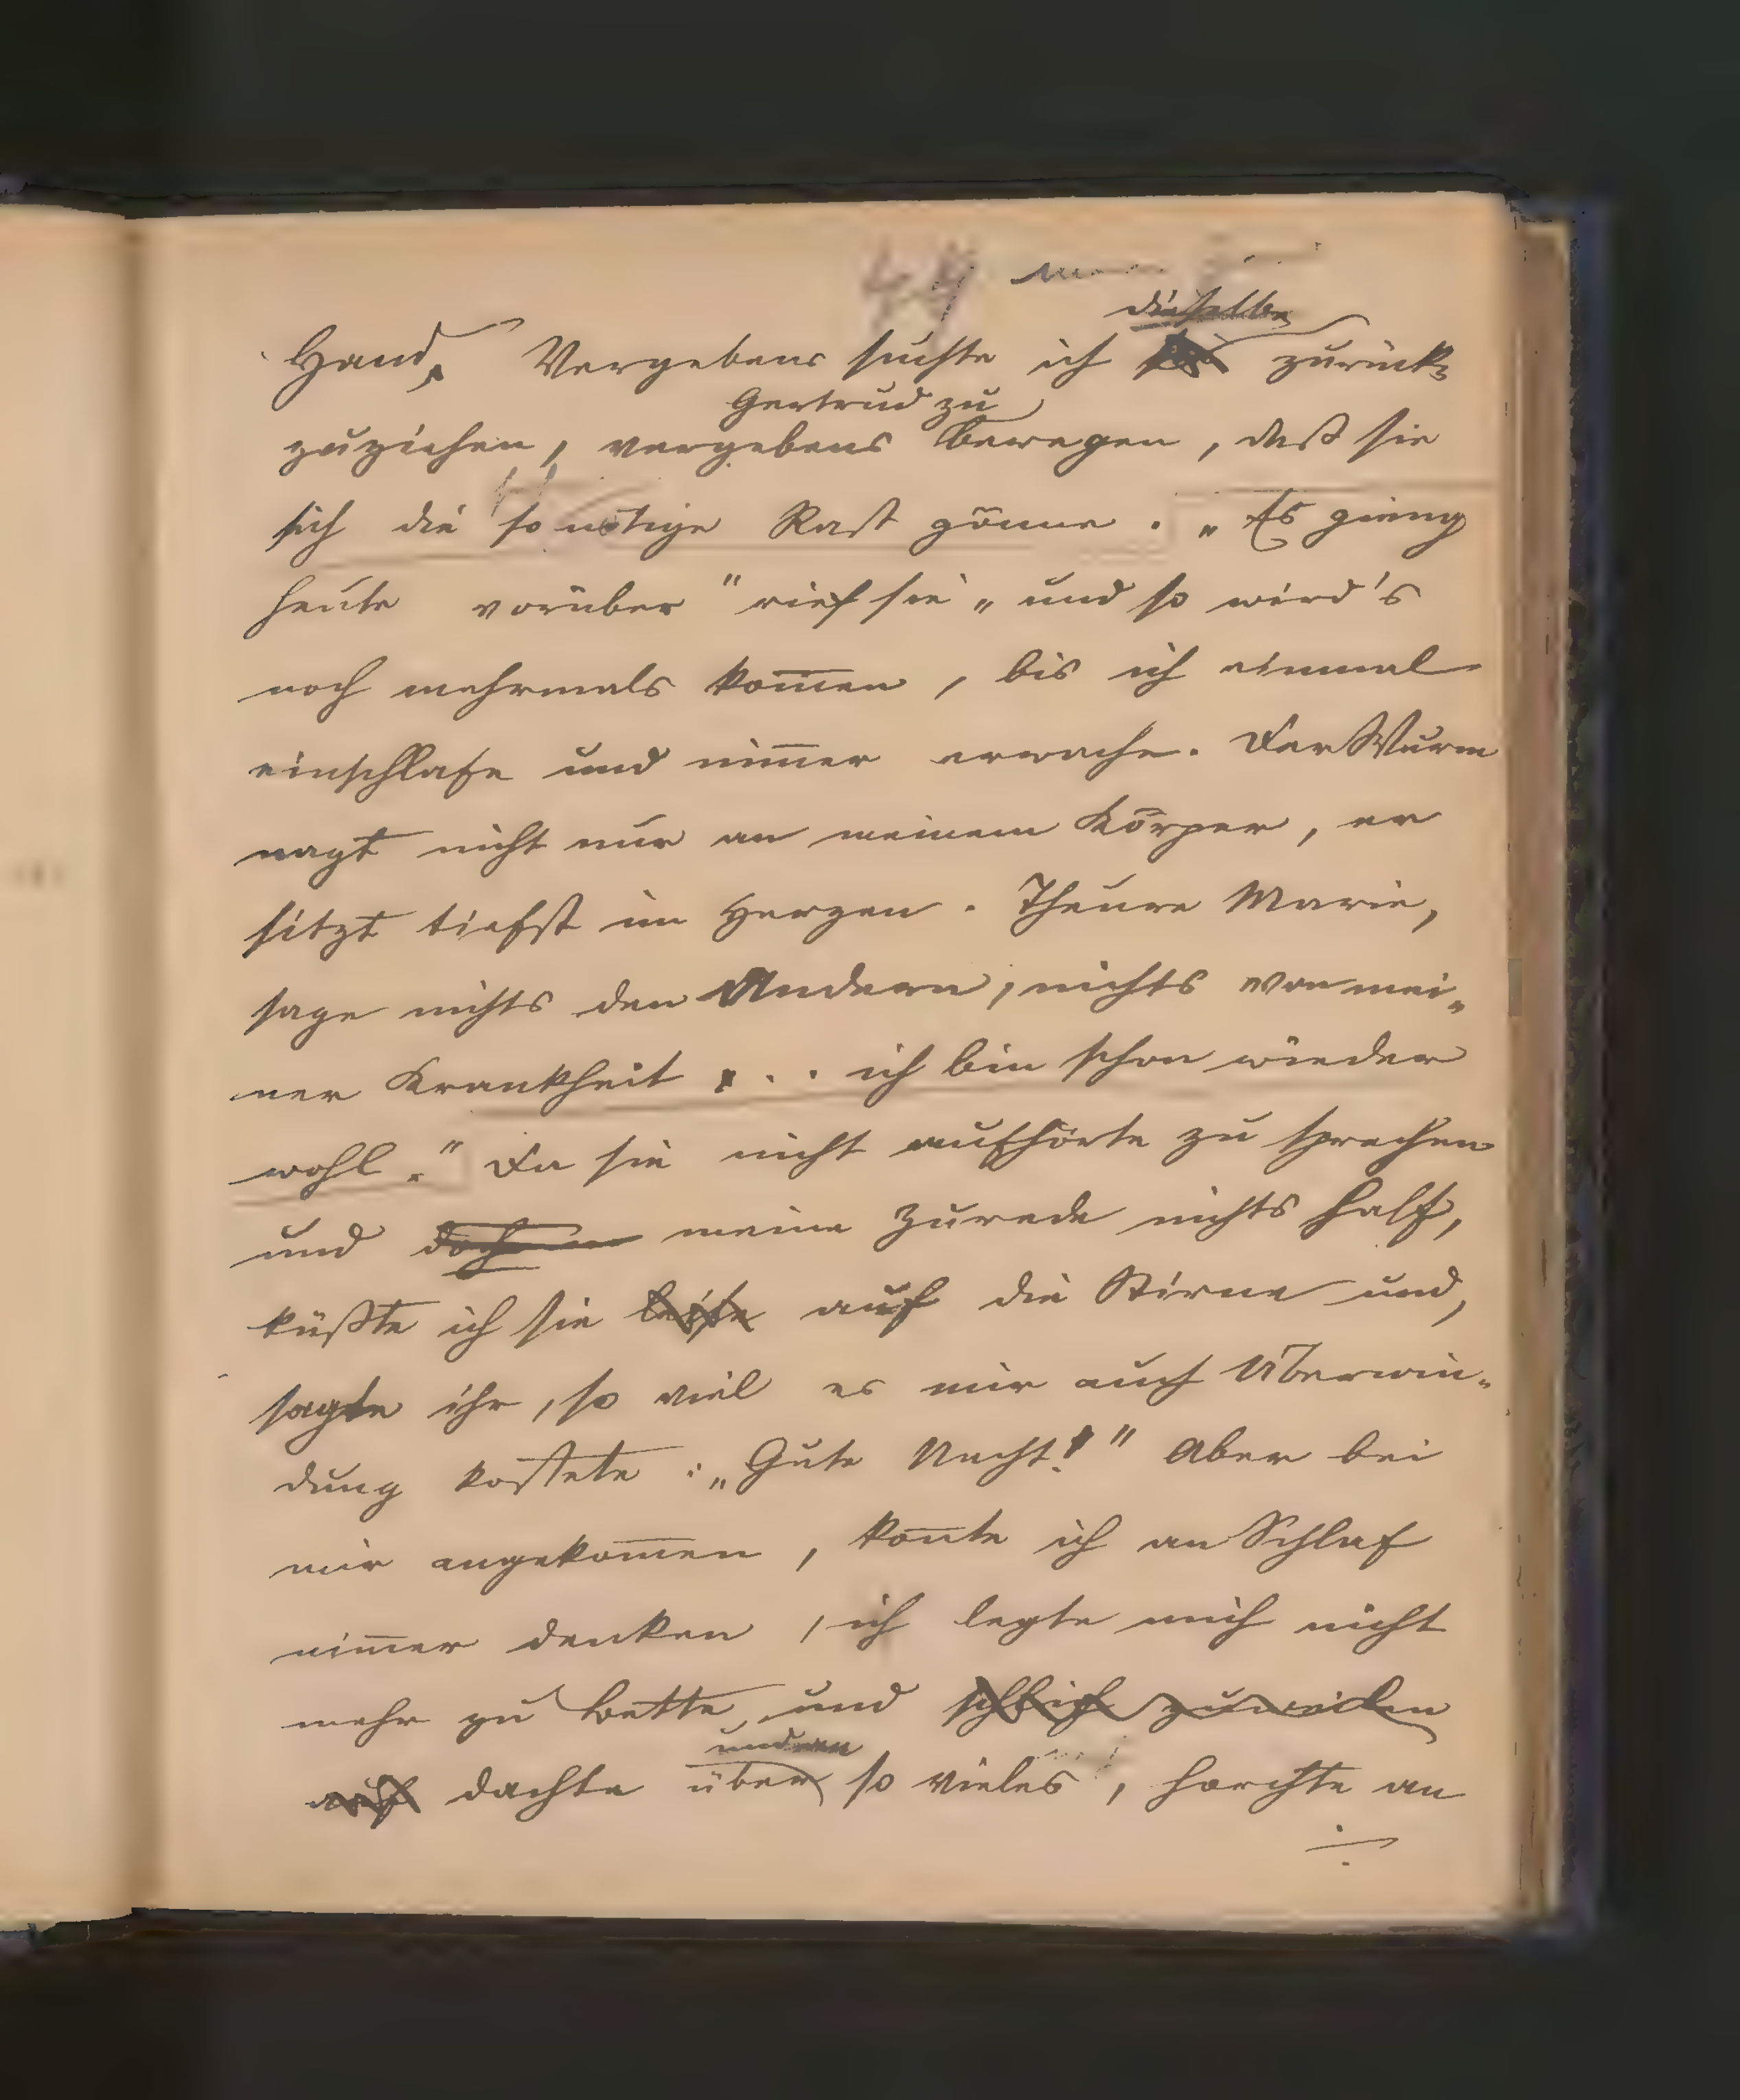 44
dieselbe
Hand. Vergebens suchte ich zurück-
Gertrud zu
zuziehen, vergebens bewegen, daß sie
sich die so nötige Rast gönne. „Es gieng
heute vorüber" rief sie „und so wird's
noch mehrmals kom̅en, bis ich einmal
einschlafe und nim̅er erwache. Der Wurm
nagt nicht nur an meinem Körper, er
sitzt tiefst im Herzen. Theure Marie,
sage nichts den Andern, nichts von mei„
ner Krankheit . . . ich bin schon wieder
wohl." Da sie nicht aufhörte zu sprechen
und doch meine Zurede nichts half,
küßte ich sie leise auf die Stirne und,
sagte ihr, so viel es mir auch Überwin„
dung kostete: „Gute Nacht!" Aber bei
mir angekom̅en, kon̅te ich an Schlaf
nim̅er denken, ich legte mich nicht
mehr zu Bette, und schlich zuweilen
auf dachte über so vieles, horchte an